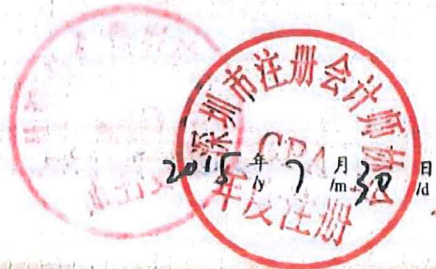 深圳市注册会计师协会
CPA
年度注册
2015 年 7 月 30 日
/y /m /d